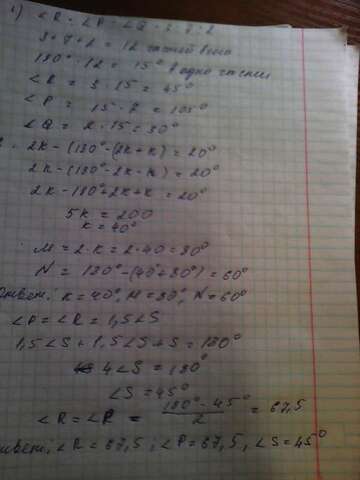 1) ∠R : ∠P : ∠Q = 3 : 7 : 2
3 + 7 + 2 = 12 частей всего
180° : 12 = 15° в одной части
∠R = 3 · 15 = 45°
∠P = 15 · 7 = 105°
∠Q = 2 · 15 = 30°
2. 2K - (180° - (2K + K)) = 20°
2K - (180° - 2K - K) = 20°
2K - 180° + 2K + K = 20°
5K = 200
K = 40°
M = 2 · K = 2 · 40 = 80°
N = 180° - (40° + 80°) = 60°
Ответ: K = 40°, M = 80°, N = 60°
∠P = ∠R = 1,5∠S
1,5∠S + 1,5∠S + S = 180°
4∠S = 180°
∠S = 45°
∠R = ∠P = (180° - 45°)/2 = 67,5
Ответ: ∠R = 67,5; ∠P = 67,5, ∠S = 45°